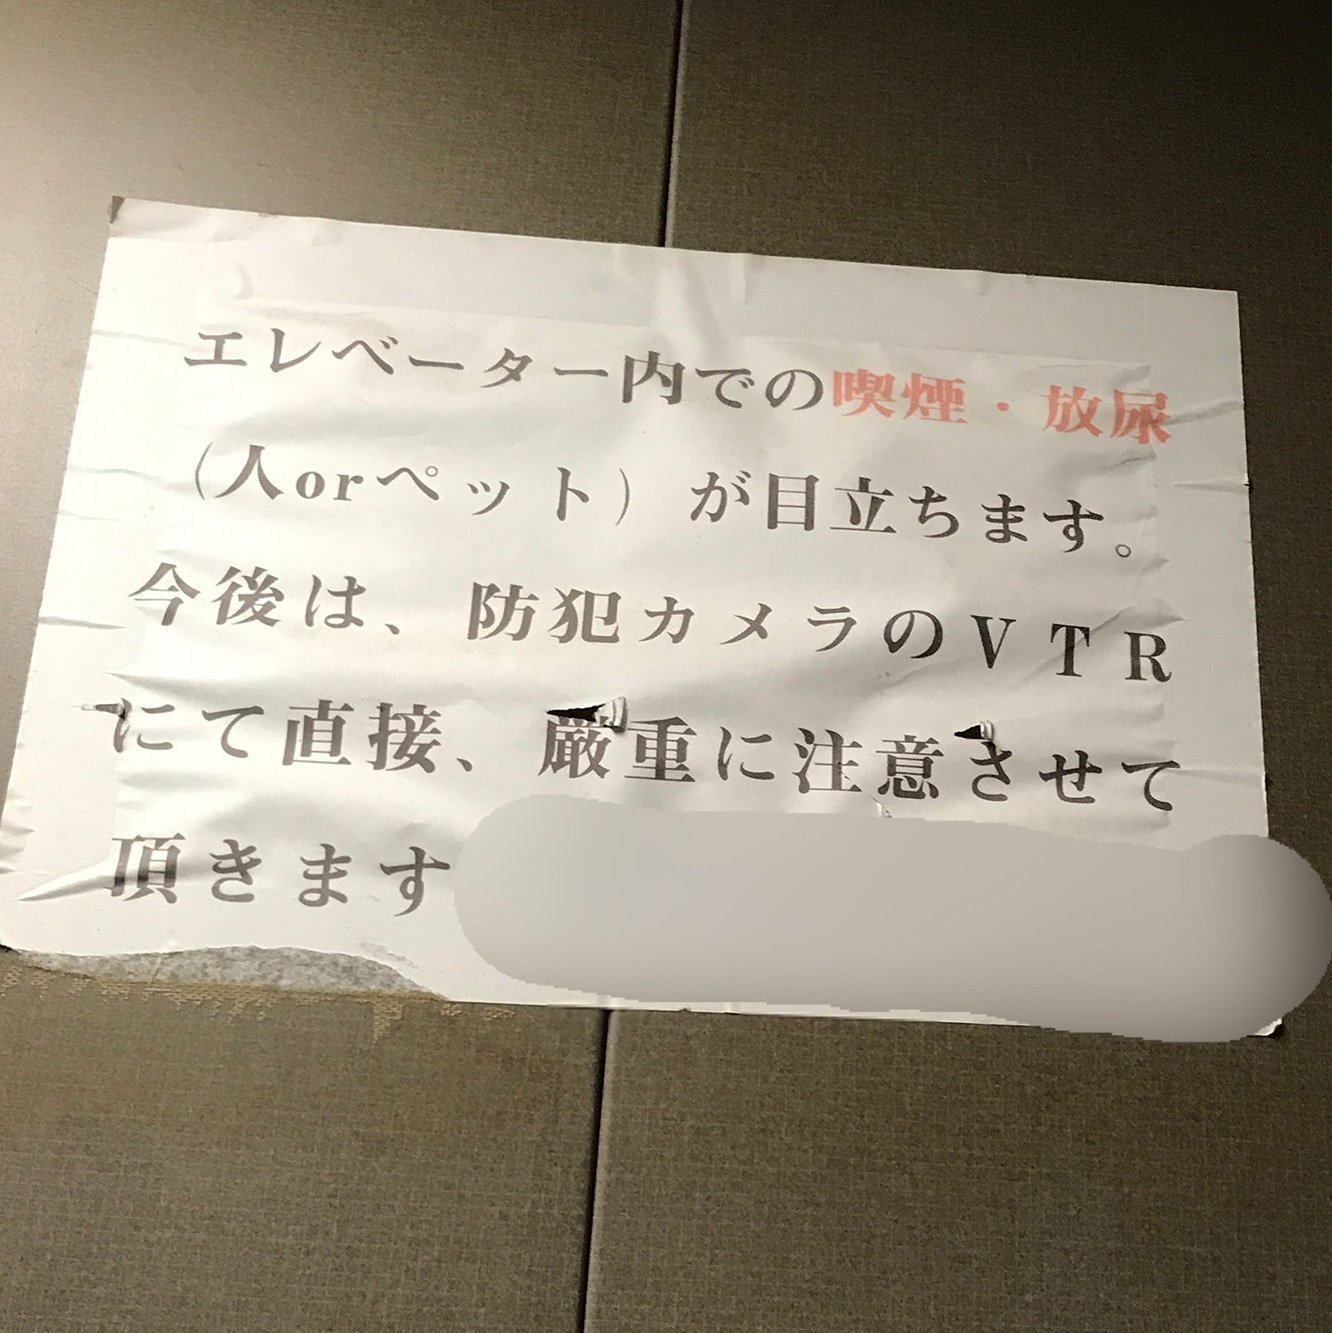 エレベーター内での喫煙・放尿
（人orペット）が目立ちます。
今後は、防犯カメラのVTR
にて直接、厳重に注意させて
頂きます